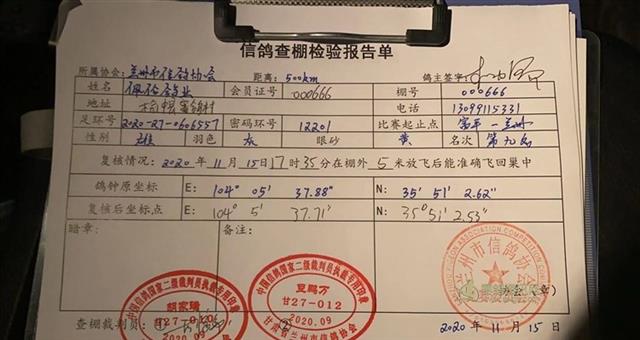 信鸽查棚检验报告单
所属协会:兰州市信鸽协会 距离:500km 鸽主签字:
姓名 佩侬鸽业 会员证号 000666 棚号 000666
地址 电话 13099115331
足环号 2020-27-0606557 密码环号 12201 比赛起止点 富平—兰州
性别 雄 羽色 灰 眼砂 黄 名次 第九名
复核情况:2020年11月15日17时35分在棚外5米放飞后能准确飞回巢中
鸽钟原坐标 E: 104° 05' 37.88" N: 35° 51' 2.62"
复核后坐标点 E: 104° 5' 37.71" N: 35° 51' 2.53"
暗章: 备注:
中国信鸽国家二级裁判员执裁专用印章
胡家瑞
甘27-020
2020.09
中国信鸽国家二级裁判员执裁专用印章
豆鹏万
甘27-012
2020.09
甘肃省兰州市信鸽协会
兰州市信鸽协会
协会(章)
查棚裁判员:① ②
2020年11月15日